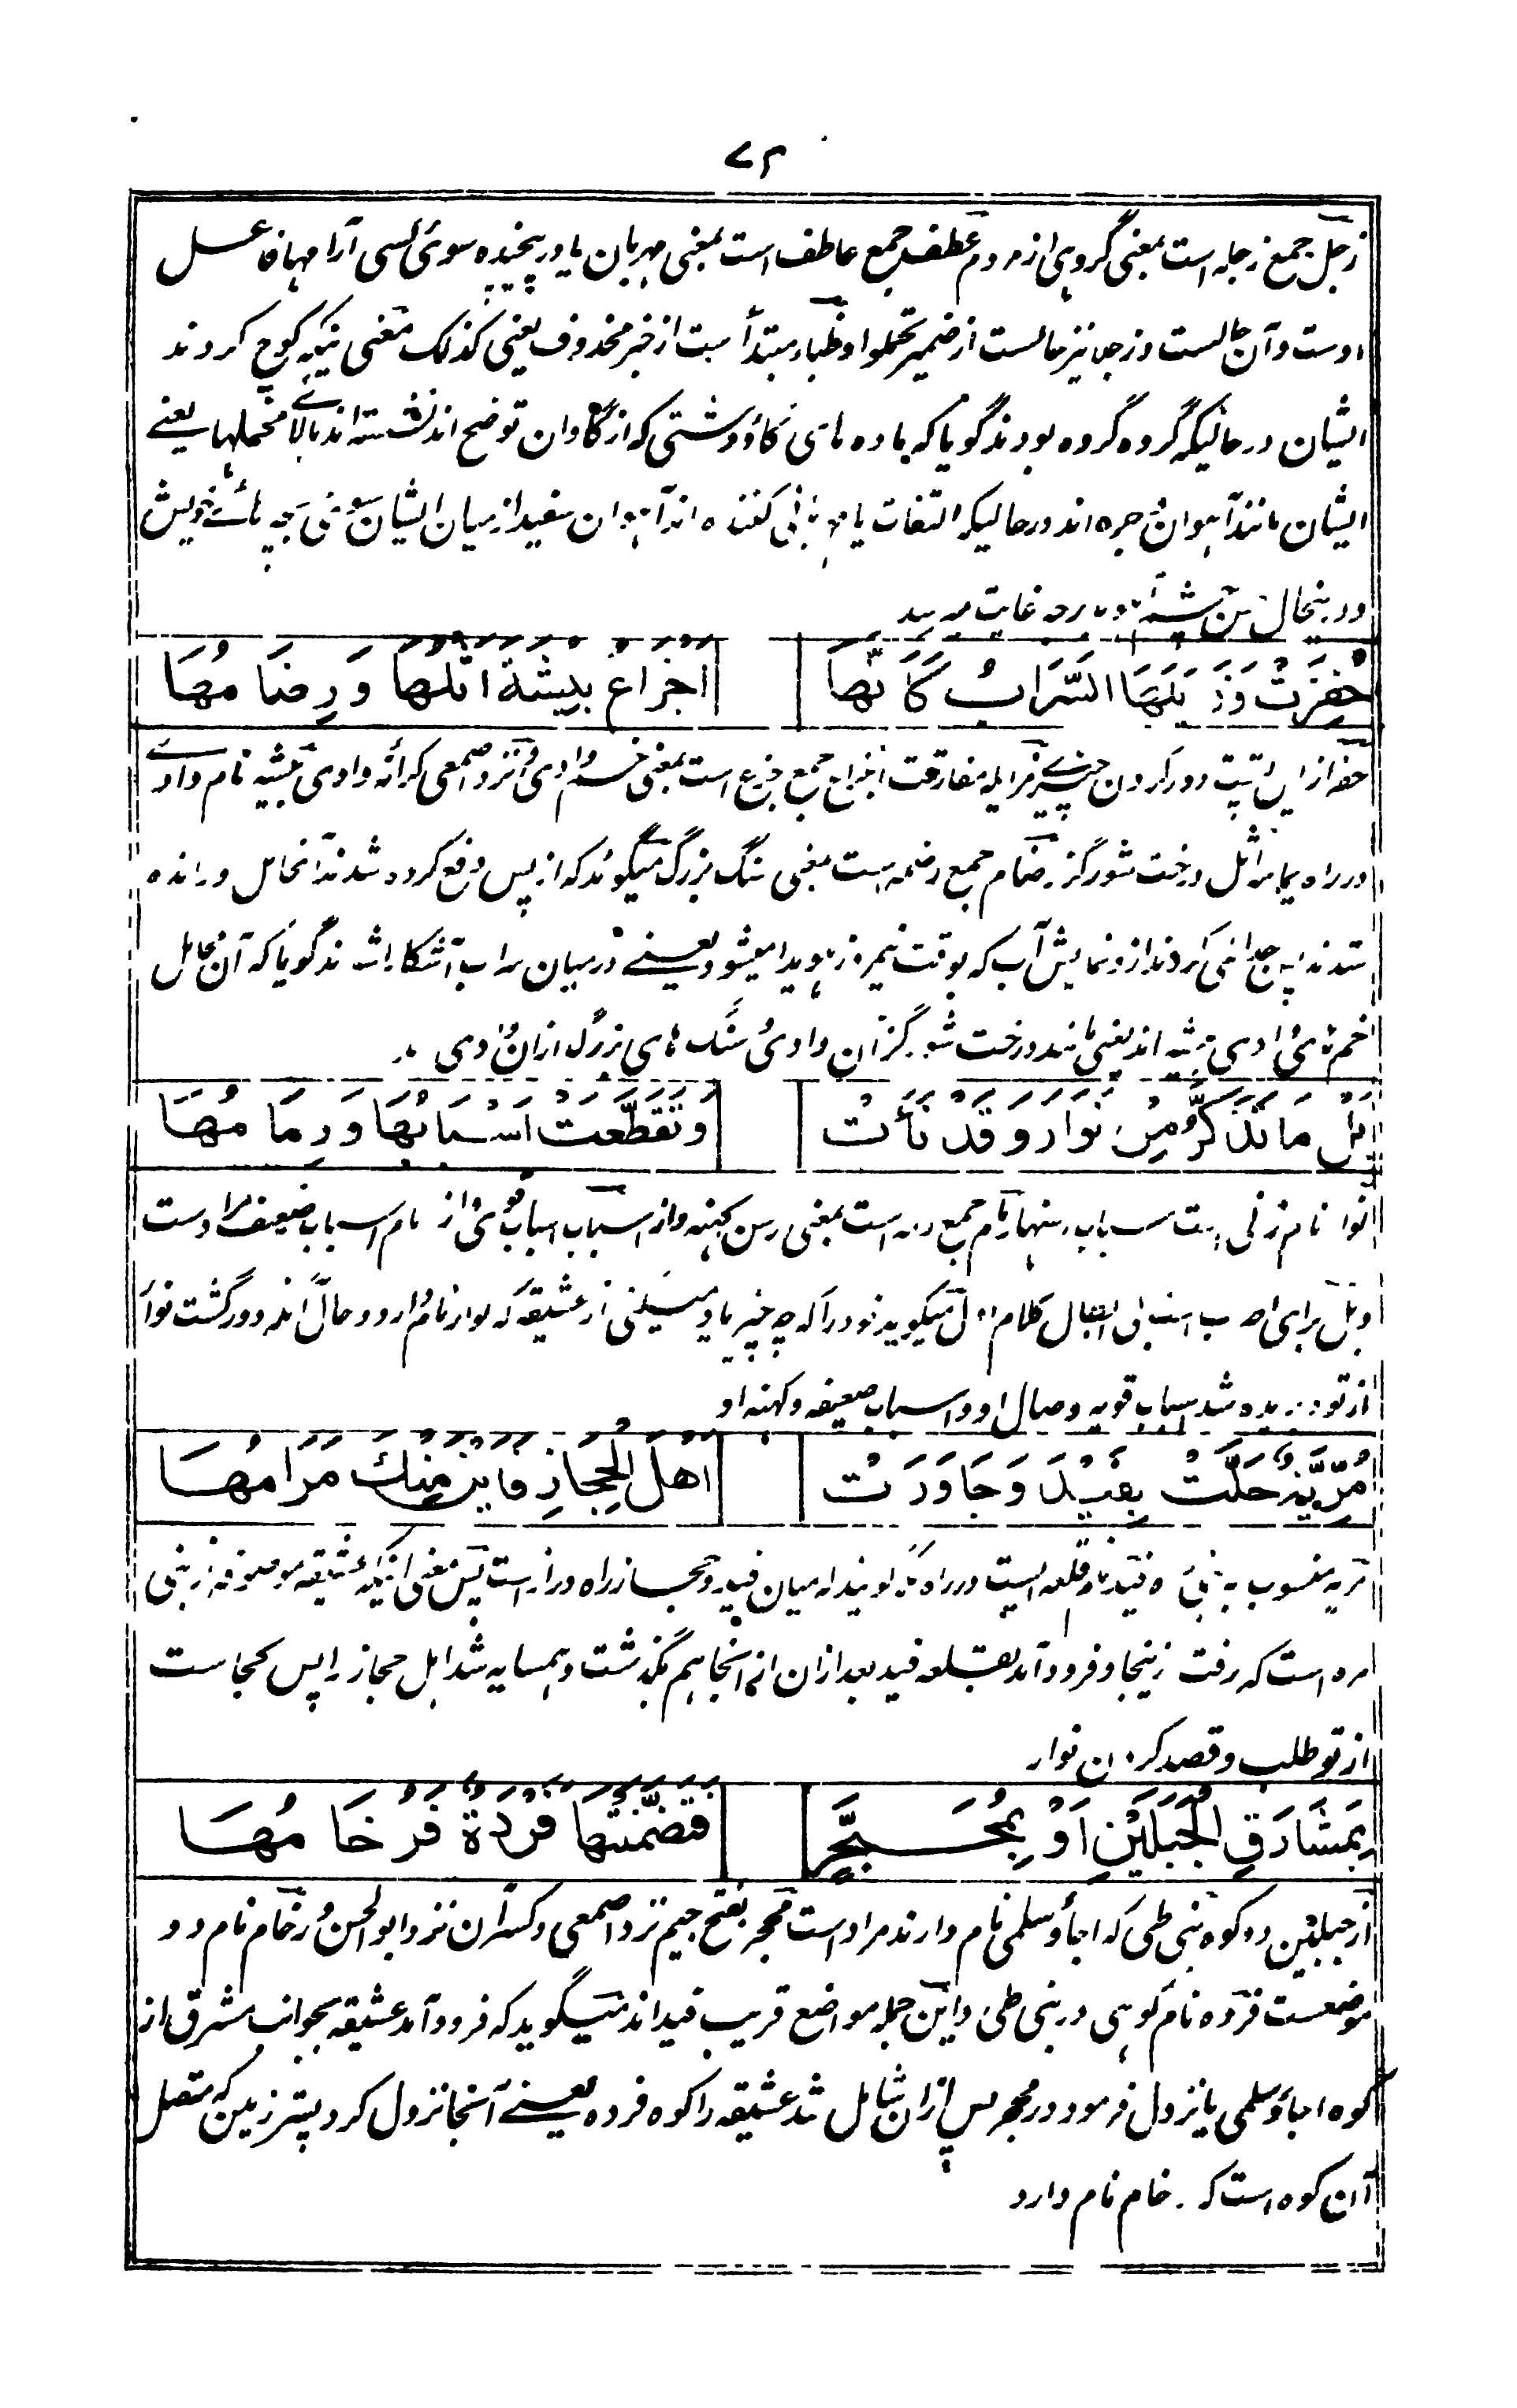 ۷۲
زجل جمع زجله است بمعنی گروهی از مردم عطف جمع عاطف است بمعنی مهربان یا درپیچیده سوئ کسی آرامها فاعل
اوست و آن حالست و زجلا نیز حالست از ضمیر تحملوا و ظباء مبتدأ ست از خبر محذوف یعنی کذلک معنی اینکه کوچ کردند
ایشان در حالیکه گروه گروه بودند گویا که ماده های گاؤ دشتی که از گاوان توضح اند نشسته اند بالائے محملها یعنے
ایشان مانند آهوان وجره اند در حالیکه التفات یا مهربانی کننده اند آهوان سفید از میان ایشان سوئ بچه هائے خویش
و در اینحال
حُفِزَتْ وَزَيَلَهَا السَّرَابُ كَأَنَّهَا
اَجْزَاعُ بِيْشَةَ اَثْلُهَا وَرِضَامُهَا
حفز از پس دور کردن چیزے مزایله مفارقت اجزاع جمع جزع است بمعنی خم وادی و نزد اصمعی کرانه وادی بیشه نام وادے
در راه یمامه اثل درخت شورگز رضام جمع رضمه است بمعنی سنگ بزرگ میگوید که از پس دفع کرده شدند آنحامل و رانده
شدند جدائی کردند از و نمایش آب که بوقت نیمروز هویدا میشود یعنے در میان سراب آشکارا شدند گویا که آن محامل
خم وادی بیشه اند یعنی مانند درخت شورگز آن وادی و سنگ های بزرگ ازان وادی
بَلْ مَا تَذَكَّرُ مِنْ نَوَارَ وَقَدْ نَأَتْ
وَتَقَطَّعَتْ اَسْبَابُهَا وَرِمَامُهَا
نوار نام زنی است اسباب رسنها رمام جمع رمه است بمعنی رسن کهنه و از اسباب اسباب قوی و از رمام اسباب ضعیف مراد ست
و بل برای اضراب است ای ابطال کلام اول میگوید خود را که چه چیز یاد میکنی از عشیقه که نوار نام دارد و حال آنکه دور گشت نوار
از تو و بریده شد اسباب قویه وصال او و اسباب ضعیفه و کهنه او
مُرِّيَّةٌ حَلَّتْ بِفَيْدَ وَجَاوَرَتْ
اَهْلَ الْحِجَازِ فَاَيْنَ مِنْكَ مَرَامُهَا
مریه منسوب به بنی مره فید نام قلعه ایست در راه مکه گویند که میان فید و حجاز راه دراز است پس معنی اینکه عشیقه موصوفه از بنی
مره است که رفت زینجا و فرود آمد بقلعه فید بعد ازان از آنجا هم گذشت و همسایه شد اهل حجاز را پس کجاست
از تو طلب و قصد کردن نوار
بِمَشَارِقِ الْجَبَلَيْنِ اَوْ بِمُحَجَّرٍ
فَتَضَمَّنَتْهَا فَرْدَةٌ فَرُخَامُهَا
از جبلین دو کوه بنی طی که اجأ و سلمی نام دارند مراد است محجر بفتح جیم نزد اصمعی و کسر آن نزد ابوالحسن و رخام نام دو
موضعست فرده نام کوهی در بنی طی و این جمله مواضع قریب فید اند میگوید که فرود آمد عشیقه بجوانب مشرق از
کوه اجأ و سلمی یا نزول فرمود در محجر پس ازان شامل شد عشیقه را کوه فرده یعنے آنجا نزول کرد پستر زمین که متصل
آن کوه است که رخام نام دارد